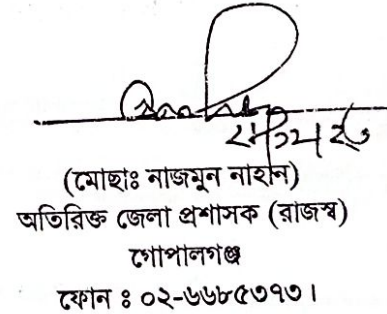 (মোছাঃ নাজমুন নাহান)
অতিরিক্ত জেলা প্রশাসক (রাজস্ব)
গোপালগঞ্জ
ফোন ঃ ০২-৬৬৮৫৩৭৩।